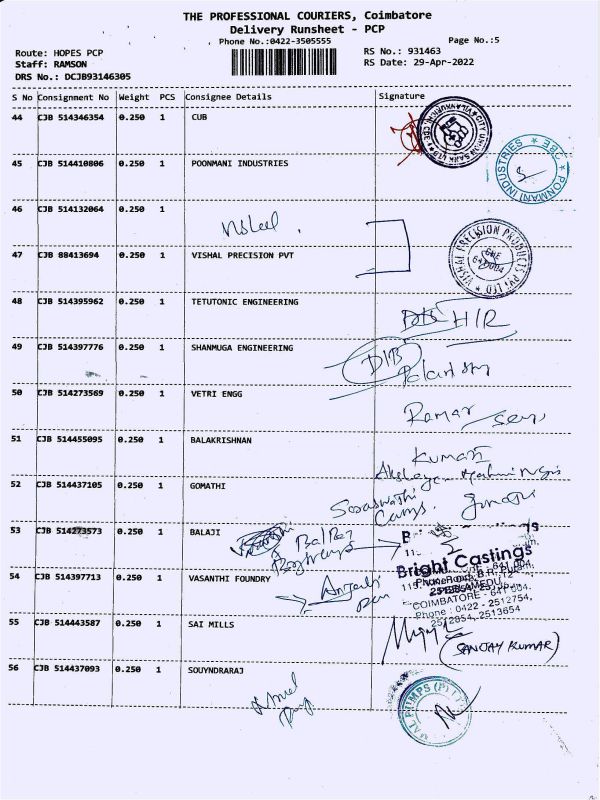 THE PROFESSIONAL COURIERS, Coimbatore
Delivery Runsheet - PCP
Phone No.:0422-3505555
Page No.:5
Route: HOPES PCP
RS No.: 931463
Staff: RAMSON
RS Date: 29-Apr-2022
DRS No.: DCJB93146305
S No Consignment No Weight PCS Consignee Details Signature
44 CJB 514346354 0.250 1 CUB
45 CJB 514410806 0.250 1 POONMANI INDUSTRIES
PONMANI INDUSTRIES * CBE *
46 CJB 514132064 0.250 1
47 CJB 88413694 0.250 1 VISHAL PRECISION PVT
VISHAL PRECISION PRODUCTS PVT LTD *
CBE
641 004
48 CJB 514395962 0.250 1 TETUTONIC ENGINEERING
H/R
49 CJB 514397776 0.250 1 SHANMUGA ENGINEERING
50 CJB 514273569 0.250 1 VETRI ENGG
Raman
51 CJB 514455095 0.250 1 BALAKRISHNAN
Kumar
52 CJB 514437105 0.250 1 GOMATHI
Saraswathi
53 CJB 514273573 0.250 1 BALAJI
Bright Castings
54 CJB 514397713 0.250 1 VASANTHI FOUNDRY
COIMBATORE - 641 004.
Phone : 0422 - 2512754,
2512854, 2513654
55 CJB 514443587 0.250 1 SAI MILLS
(SANJAY KUMAR)
56 CJB 514437093 0.250 1 SOUYNDRARAJ